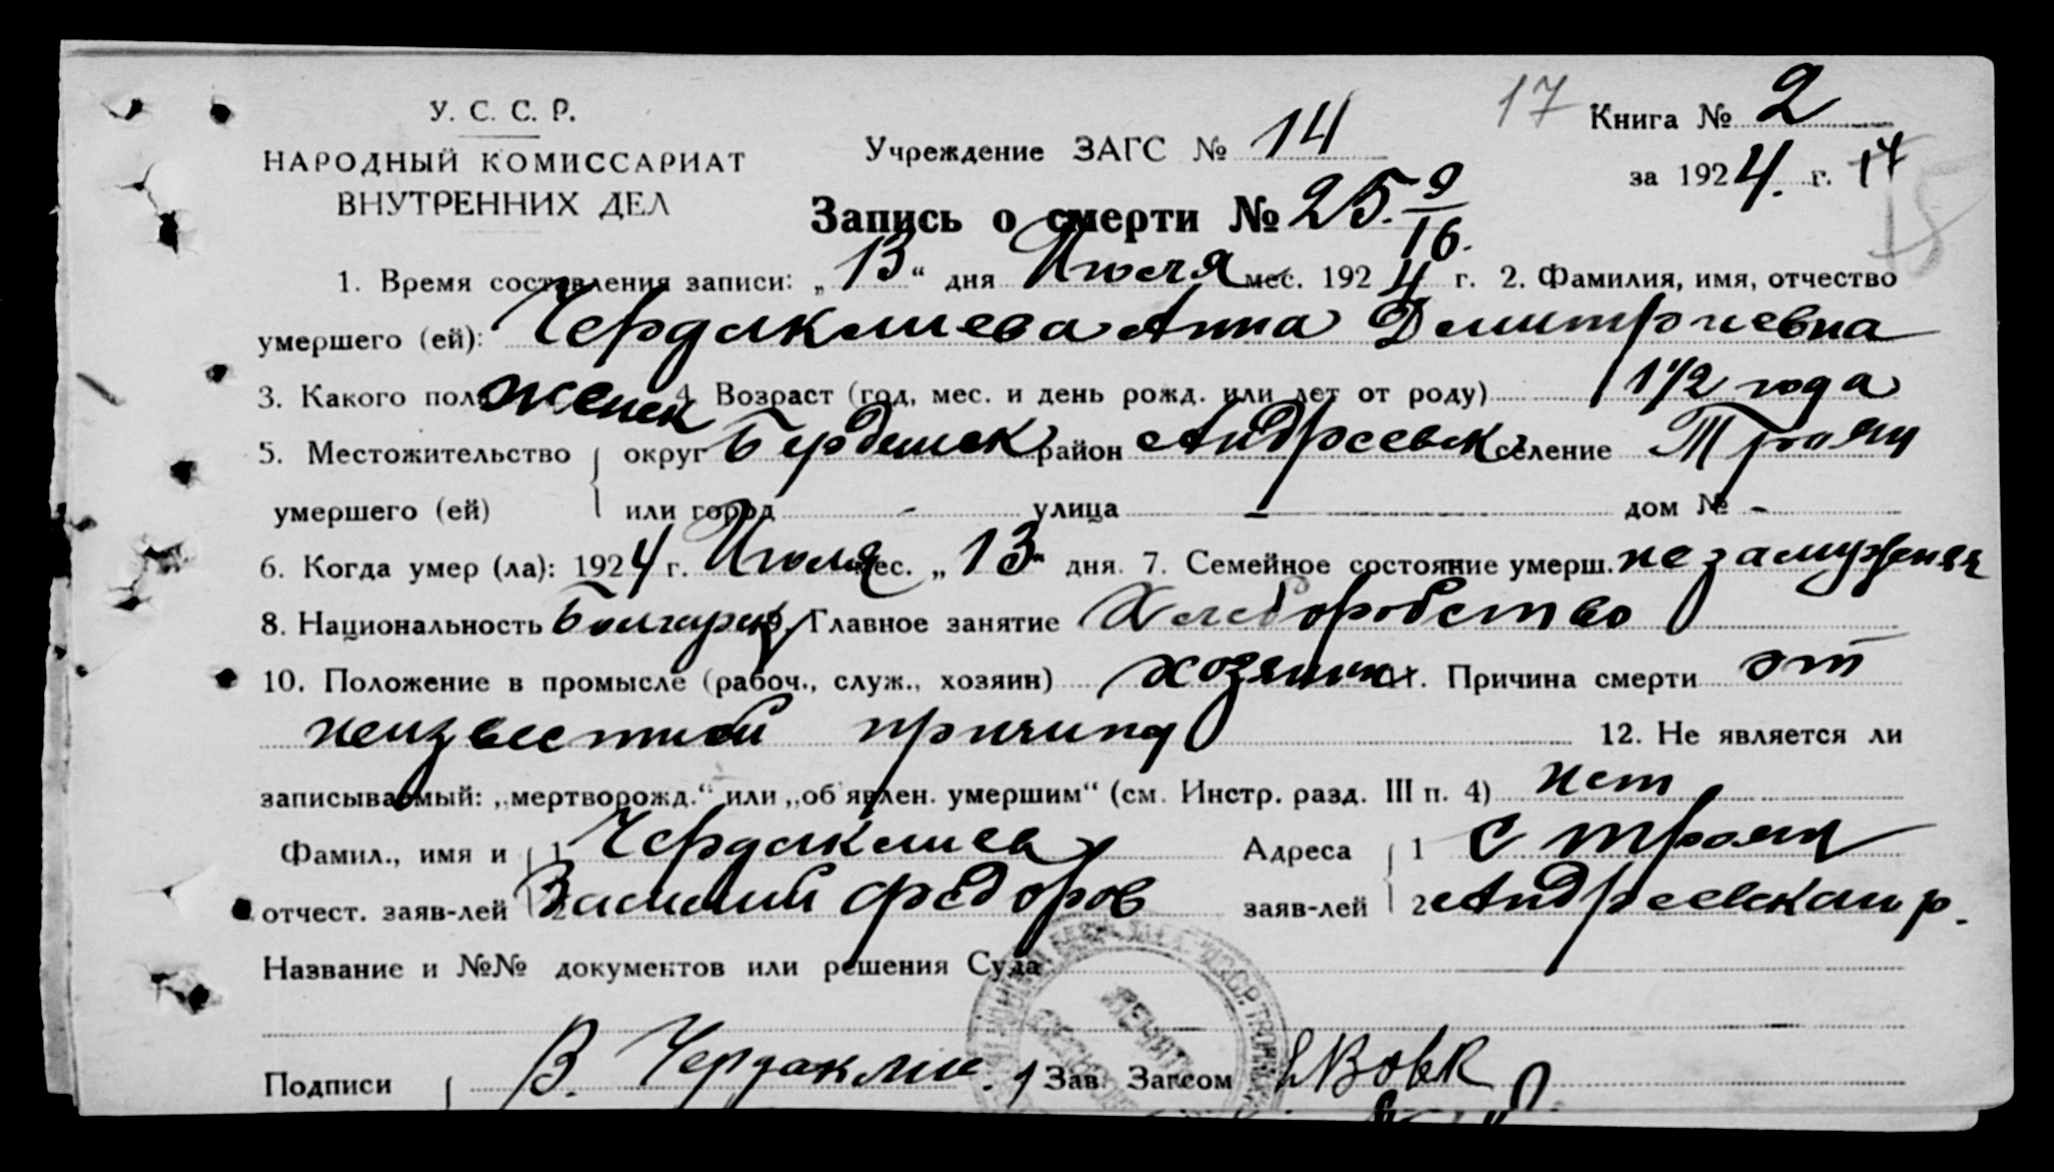 У. С. С. Р.
НАРОДНЫЙ КОМИССАРИАТ
ВНУТРЕННИХ ДЕЛ
Учреждение ЗАГС № 14
17 Книга № 2
за 1924. г. 17
15
Запись о смерти № 25. 9/16.
1. Время составления записи: „13“ дня Июля мес. 1924 г. 2. Фамилия, имя, отчество
умершего (ей): Чердаклиева Анна Дмитриевна
3. Какого пола женск 4. Возраст (год, мес. и день рожд. или лет от роду) 1 1/2 года
5. Местожительство округ Бердянск район Андреевск селение Трояны
умершего (ей) или город - улица - дом № -
6. Когда умер (ла): 1924 г. Июля мес. „13“ дня. 7. Семейное состояние умерш. незамужняя
8. Национальность Болгарка 9. Главное занятие Хлеборобство
10. Положение в промысле (рабоч., служ., хозяин) хозяин 11. Причина смерти от
неизвестной причины 12. Не является ли
записываемый: „мертворожд.“ или „об'явлен. умершим“ (см. Инстр. разд. III п. 4) нет
Фамил., имя и 1 Чердаклиев Адреса 1 с Трояны
отчест. заяв-лей 2 Василий Федоров заяв-лей 2 Андреевскаго р.
Название и №№ документов или решения Суда
Подписи В. Чердаклие. Зав. Загсом Вовк